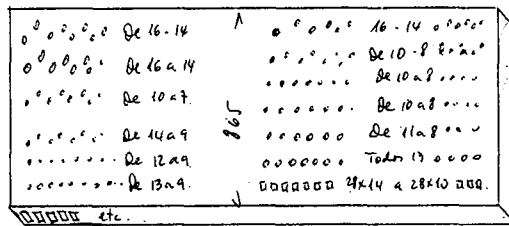 De 16-14
De 16 a 14
De 10 a 7.
De 14 a 9
De 12 a 9.
De 13 a 9.
865
16-14
De 10-8
De 10 a 8
De 10 a 8
De 11 a 8
Todos 13
28x14 a 28x10
etc.